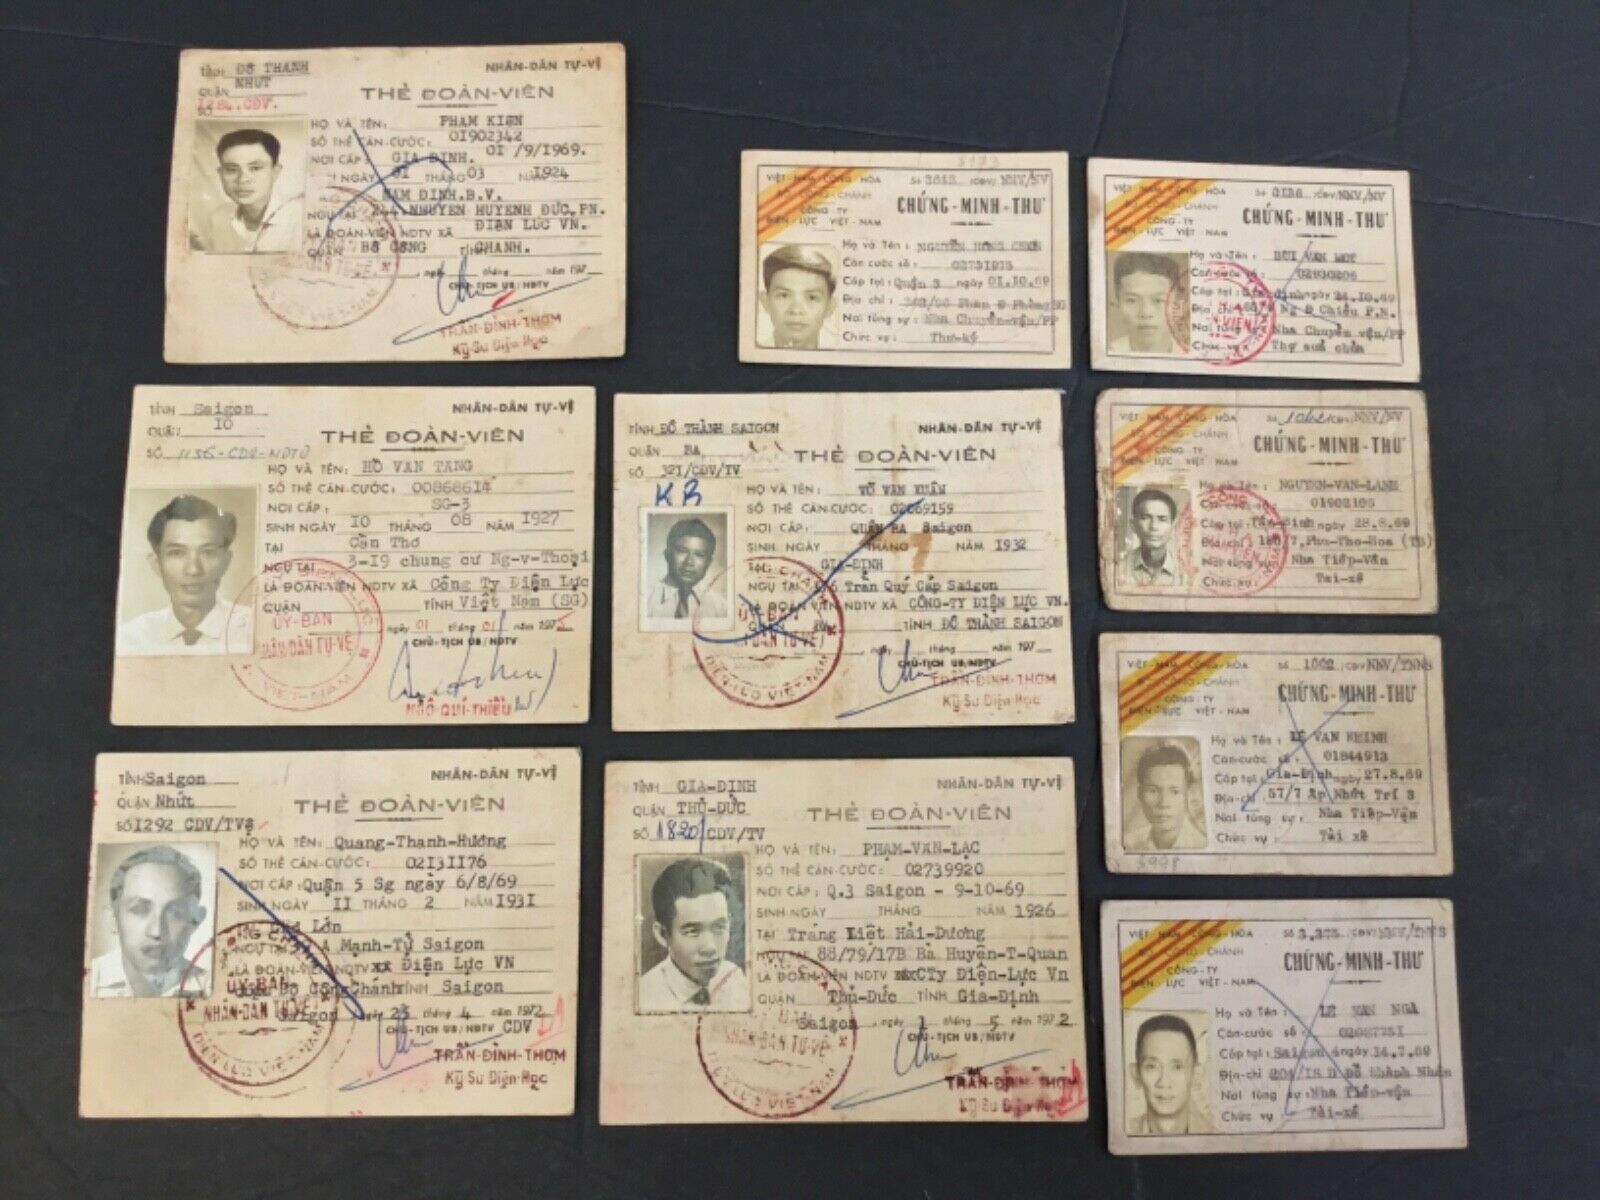 TỈNH ĐÔ THANH
NHÂN-DÂN TỰ-VỆ
QUẬN NHUT
THẺ ĐOÀN-VIÊN
SỐ 1284.CĐV.
HỌ VÀ TÊN: PHẠM KIÊN
SỐ THẺ CĂN-CƯỚC: 01902342
NƠI CẤP: GIA ĐỊNH. 01/9/1969.
NGÀY 01 THÁNG 03 NĂM 1924
NAM ĐỊNH.B.V.
NGỤ TẠI NGUYEN HUYENH ĐỨC, PN.
LÀ ĐOÀN-VIÊN NDTV XÃ ĐIỆN LUC VN.
QUẬN ĐO CONG TỈNH CHANH.
ngày tháng năm 197
CHỦ-TỊCH UB/NDTV
TRẦN-ĐÌNH-THƠM
Kỹ Sư Điện Học
TỈNH Saigon
NHÂN-DÂN TỰ-VỆ
QUẬN 10
THẺ ĐOÀN-VIÊN
SỐ 1136-CDV-NDTV
HỌ VÀ TÊN: HỒ VAN TANG
SỐ THẺ CĂN-CƯỚC: 00868614
NƠI CẤP: SG-3
SINH NGÀY 10 THÁNG 08 NĂM 1927
TẠI Cần Thơ
NGỤ TẠI 3-19 chung cư Ng-v-Thoại
LÀ ĐOÀN-VIÊN NDTV XÃ Công Ty Điện Lực
QUẬN TỈNH Việt Nam (SG)
ngày 01 tháng 01 năm 197
CHỦ-TỊCH UB/NDTV
ỦY-BAN
NHÂN DÂN TỰ-VỆ
NGÔ-QUÍ-THIỀU
TỈNH Saigon
NHÂN-DÂN TỰ-VỆ
QUẬN Nhứt
THẺ ĐOÀN-VIÊN
SỐ 1292 CDV/TVệ
HỌ VÀ TÊN: Quang-Thanh-Hương
SỐ THẺ CĂN-CƯỚC: 02131176
NƠI CẤP: Quận 5 Sg ngày 6/8/69
SINH NGÀY 11 THÁNG 2 NĂM 1931
TẠI Chợ Lớn
NGỤ TẠI A Mạnh-Tử Saigon
LÀ ĐOÀN-VIÊN NDTV XÃ Điện Lực VN
QUẬN Đô CôngChánh TỈNH Saigon
Saigon ngày 23 tháng 4 năm 1972
CHỦ-TỊCH UB/NDTV CDV
ỦY-BAN
NHÂN-DÂN TỰ-VỆ
ĐIỆN LỰC VIỆT-NAM
TRẦN-ĐÌNH-THƠM
Kỹ Sư Điện Học
TỈNH ĐÔ THÀNH SAIGON
NHÂN-DÂN TỰ-VỆ
QUẬN BA
THẺ ĐOÀN-VIÊN
SỐ 321/CĐV/TV
KB
HỌ VÀ TÊN: VÕ VAN XUÂN
SỐ THẺ CĂN-CƯỚC: 02069159
NƠI CẤP: QUẬN BA Saigon
SINH NGÀY THÁNG NĂM 1932
TẠI GIA-ĐỊNH
NGỤ TẠI Trần Quý Cáp Saigon
LÀ ĐOÀN VIÊN NDTV XÃ CÔNG-TY ĐIỆN LỰC VN.
QUẬN BA TỈNH ĐÔ THÀNH SAIGON
ngày tháng năm 197
CHỦ-TỊCH UB/NDTV
ĐIỆN LỰC VIỆT-NAM
TRẦN-ĐÌNH-THƠM
Kỹ Sư Điện Học
TỈNH GIA-ĐỊNH
NHÂN-DÂN TỰ-VỆ
QUẬN THỦ-ĐỨC
THẺ ĐOÀN-VIÊN
SỐ 1820/CDV/TV
HỌ VÀ TÊN: PHẠM-VĂN-LẠC
SỐ THẺ CĂN-CƯỚC: 02739920
NƠI CẤP: Q.3 Saigon - 9-10-69
SINH NGÀY THÁNG NĂM 1926
TẠI Tráng Liệt Hải-Dương
NGỤ TẠI 88/79/17B Bà Huyện-T-Quan
LÀ ĐOÀN-VIÊN NDTV CTy Điện-Lực Vn
QUẬN Thủ-Đức TỈNH Gia-Định
Saigon, ngày 1 tháng 5 năm 1972
CHỦ-TỊCH UB/NDTV
NHÂN-DÂN TỰ-VỆ
TRẦN-ĐÌNH-THƠM
Kỹ Sư Điện Học
VIỆT-NAM CỘNG-HÒA
Số 3613 /CĐV/NNV/NV
CÔNG-CHÁNH
CÔNG-TY
ĐIỆN-LỰC VIỆT-NAM
CHỨNG-MINH-THƯ
Họ và Tên: NGUYỄN HỒNG
Căn cước số: 02731975
Cấp tại: Quận 3 ngày 01.10.69
Địa chỉ: Phan Đ Phùng SG
Nơi tùng sự: Nha Chuyển-vận/PP
Chức vụ: Thư-ký
VIỆT-NAM CỘNG-HÒA
Số 0136 /CĐV/NNV/NV
CÔNG-CHÁNH
CÔNG-TY
ĐIỆN-LỰC VIỆT-NAM
CHỨNG-MINH-THƯ
Họ và Tên: BÙI VAN MOT
Căn cước số: 02030206
Cấp tại: Gia Định ngày 24.10.69
Địa chỉ Ng Đ Chiểu P.N.
Nơi tùng sự: Nha Chuyển vận/PP
Chức vụ: Thợ sửa chữa
VIỆT-NAM CỘNG-HÒA
CÔNG-CHÁNH
CÔNG-TY
ĐIỆN-LỰC VIỆT-NAM
CHỨNG-MINH-THƯ
Họ và Tên: NGUYEN-VAN-LANH
01902105
Cấp tại: Tân-Bình ngày 28.8.69
Địa chỉ Phu-Tho-Hoa (TB)
Nơi tùng sự: Nha Tiếp-Vận
Chức vụ: Tai-xế
VIỆT-NAM CỘNG-HÒA
Số 1002 /CĐV NNV/TNNS
CÔNG-CHÁNH
CÔNG-TY
ĐIỆN-LỰC VIỆT-NAM
CHỨNG-MINH-THƯ
Họ và Tên: LÊ VAN KHINH
Căn-cước số: 01844913
Cấp tại Gia-Định ngày 27.8.69
Địa-chỉ 57/7 Ấp Nhứt Trí 3
Nơi tùng sự: Nha Tiếp-Vận
Chức vụ: Tài xế
VIỆT-NAM CỘNG-HÒA
CÔNG-CHÁNH
CÔNG-TY
ĐIỆN-LỰC VIỆT-NAM
CHỨNG-MINH-THƯ
Họ và Tên: LÊ VAN NGÀ
Căn-cước số:
Cấp tại: Saigon ngày 14.7.69
Địa-chỉ 204/18 D Đỗ Thành Nhân
Nơi tùng sự: Nha Tiếp-vận
Chức vụ: Tài-xế